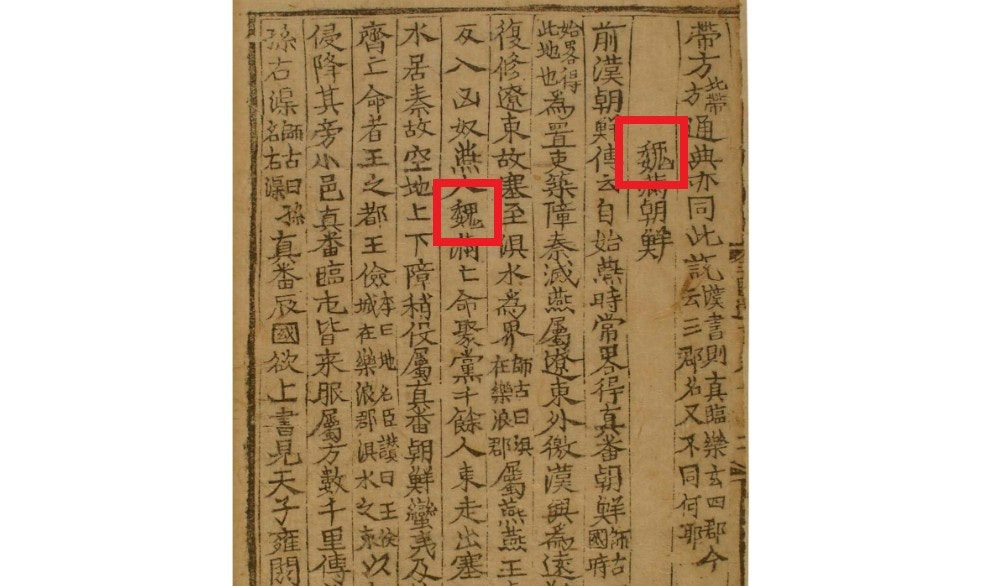 帶方此帶方通典亦同此說漢書則真臨樂玄四郡今云三郡名又不同何耶
魏滿朝鮮
前漢朝鮮傳云自始燕時常畧得真番朝鮮師古國時
始畧得此地也為置吏築障秦滅燕屬遼東外徼漢興為遠
復修遼東故塞至浿水為界師古曰浿在樂浪郡屬燕燕王
反入凶奴燕人魏滿亡命聚黨千餘人東走出塞
水居秦故空地上下障稍伇屬真番朝鮮蠻夷及
齊亡命者王之都王儉李曰地名臣讃曰王儉城在樂浪郡浿水之東以
侵降其旁小邑真番臨屯皆来服屬方數千里傳
孫右渠師古曰孫名右渠真番辰國欲上書見天子雍閼